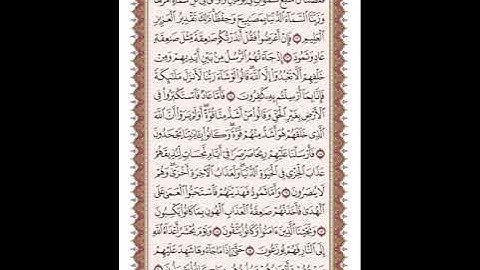 وَزَيَّنَّا ٱلسَّمَآءَ ٱلدُّنْيَا بِمَصَٰبِيحَ وَحِفْظًا ذَٰلِكَ تَقْدِيرُ ٱلْعَزِيزِ
ٱلْعَلِيمِ ۝ فَإِنْ أَعْرَضُوا۟ فَقُلْ أَنذَرْتُكُمْ صَٰعِقَةً مِّثْلَ صَٰعِقَةِ
عَادٍ وَثَمُودَ ۝ إِذْ جَآءَتْهُمُ ٱلرُّسُلُ مِنۢ بَيْنِ أَيْدِيهِمْ وَمِنْ
خَلْفِهِمْ أَلَّا تَعْبُدُوٓا۟ إِلَّا ٱللَّهَ قَالُوا۟ لَوْ شَآءَ رَبُّنَا لَأَنزَلَ مَلَٰٓئِكَةً
فَإِنَّا بِمَآ أُرْسِلْتُم بِهِۦ كَٰفِرُونَ ۝ فَأَمَّا عَادٌ فَٱسْتَكْبَرُوا۟ فِى
ٱلْأَرْضِ بِغَيْرِ ٱلْحَقِّ وَقَالُوا۟ مَنْ أَشَدُّ مِنَّا قُوَّةً أَوَلَمْ يَرَوْا۟ أَنَّ ٱللَّهَ
ٱلَّذِى خَلَقَهُمْ هُوَ أَشَدُّ مِنْهُمْ قُوَّةً وَكَانُوا۟ بِـَٔايَٰتِنَا يَجْحَدُونَ
۝ فَأَرْسَلْنَا عَلَيْهِمْ رِيحًا صَرْصَرًا فِىٓ أَيَّامٍ نَّحِسَاتٍ لِّنُذِيقَهُمْ
عَذَابَ ٱلْخِزْىِ فِى ٱلْحَيَوٰةِ ٱلدُّنْيَا وَلَعَذَابُ ٱلْـَٔاخِرَةِ أَخْزَىٰ وَهُمْ
لَا يُنصَرُونَ ۝ وَأَمَّا ثَمُودُ فَهَدَيْنَٰهُمْ فَٱسْتَحَبُّوا۟ ٱلْعَمَىٰ عَلَى
ٱلْهُدَىٰ فَأَخَذَتْهُمْ صَٰعِقَةُ ٱلْعَذَابِ ٱلْهُونِ بِمَا كَانُوا۟ يَكْسِبُونَ
۝ وَنَجَّيْنَا ٱلَّذِينَ ءَامَنُوا۟ وَكَانُوا۟ يَتَّقُونَ ۝ وَيَوْمَ يُحْشَرُ أَعْدَآءُ ٱللَّهِ
إِلَى ٱلنَّارِ فَهُمْ يُوزَعُونَ ۝ حَتَّىٰٓ إِذَا مَا جَآءُوهَا شَهِدَ عَلَيْهِمْ